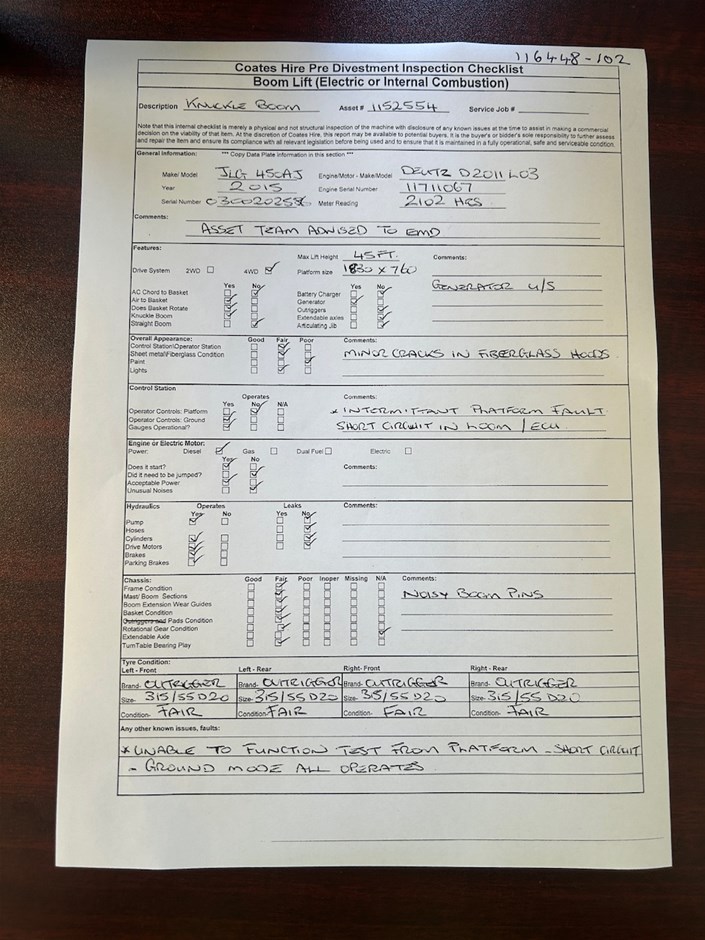 116448-102
Coates Hire Pre Divestment Inspection Checklist
Boom Lift (Electric or Internal Combustion)
Description KNUCKLE BOOM Asset # 1152554 Service Job #
Note that this internal checklist is merely a physical and not structural inspection of the machine with disclosure of any known issues at the time to assist in making a commercial
decision on the viability of that item. At the discretion of Coates Hire, this report may be available to potential buyers. It is the buyer's or bidder's sole responsibility to further assess
and repair the item and ensure its compliance with all relevant legislation before being used and to ensure that it is maintained in a fully operational, safe and serviceable condition.
General Information: *** Copy Data Plate Information in this section ***
Make/ Model JLG 450AJ Engine/Motor - Make/Model DEUTZ D2011L03
Year 2015 Engine Serial Number 11711067
Serial Number Meter Reading 2102 HRS
Comments:
ASSET TEAM ADVISED TO EMD
Features:
Max Lift Height 45FT. Comments:
Drive System 2WD 4WD Platform size 1830 x 760
GENERATOR U/S
Yes No Yes No
AC Chord to Basket Battery Charger
Air to Basket Generator
Does Basket Rotate Outriggers
Knuckle Boom Extendable axles
Straight Boom Articulating Jib
Overall Appearance: Good Fair Poor Comments:
Control Station\Operator Station
Sheet metal/Fiberglass Condition MINOR CRACKS IN FIBERGLASS HOODS
Paint
Lights
Control Station
Operates Comments:
Yes No N/A
Operator Controls: Platform * INTERMITTANT PLATFORM FAULT
Operator Controls: Ground
Gauges Operational? SHORT CIRCUIT IN LOOM / ECU
Engine or Electric Motor:
Power: Diesel Gas Dual Fuel Electric
Yes No
Does it start? Comments:
Did it need to be jumped?
Acceptable Power
Unusual Noises
Hydraulics Operates Leaks Comments:
Yes No Yes No
Pump
Hoses
Cylinders
Drive Motors
Brakes
Parking Brakes
Chassis: Good Fair Poor Inoper Missing N/A Comments:
Frame Condition
Mast/ Boom Sections NOISY BOOM PINS
Boom Extension Wear Guides
Basket Condition
Outriggers and Pads Condition
Rotational Gear Condition
Extendable Axle
TurnTable Bearing Play
Tyre Condition:
Left - Front Left - Rear Right- Front Right - Rear
Brand- OUTRIGGER Brand- OUTRIGGER Brand- OUTRIGGER Brand- OUTRIGGER
Size- 315/55 D20 Size- 315/55 D20 Size- 315/55 D20 Size- 315/55 D20
Condition- FAIR Condition- FAIR Condition- FAIR Condition- FAIR
Any other known issues, faults:
* UNABLE TO FUNCTION TEST FROM PLATFORM - SHORT CIRCUIT
- GROUND MODE ALL OPERATES